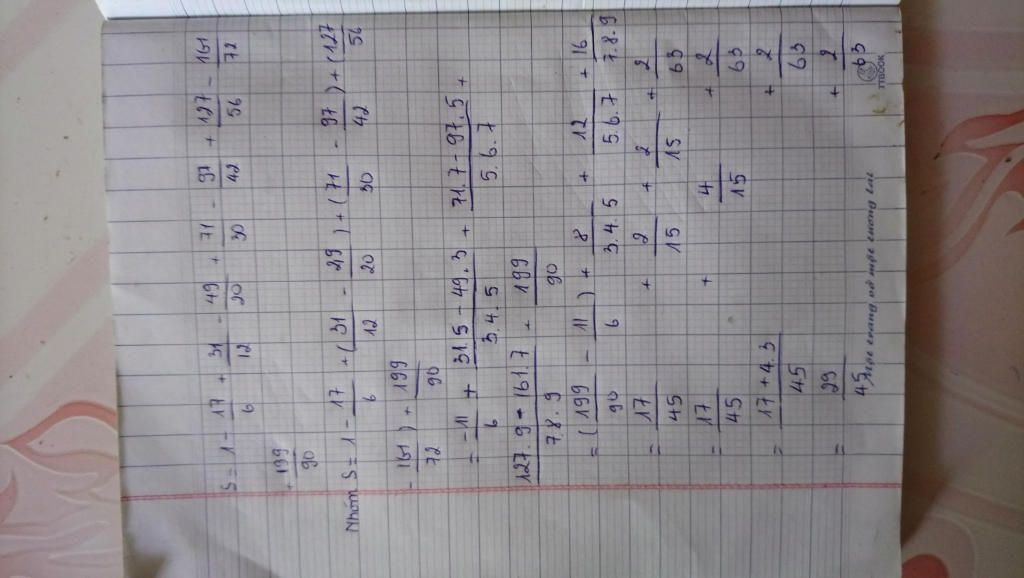 S = 1 - 17/6 + 31/12 - 49/20 + 71/30 - 97/42 + 127/56 - 161/72
+ 199/90
Nhóm S = 1 - 17/6 + (31/12 - 29/20) + (71/30 - 97/42) + (127/56
- 161/72) + 199/90
= -11/6 + 31.5 - 49.3/3.4.5 + 71.7 - 97.5/5.6.7 +
127.9 - 161.7/7.8.9 + 199/90
= (199/90 - 11/6) + 8/3.4.5 + 12/5.6.7 + 16/7.8.9
= 17/45 + 2/15 + 2/15 + 2/63
= 17/45 + 4/15 + 2/63
= 17 + 4.3/45 + 2/63
= 29/45 + 2/63